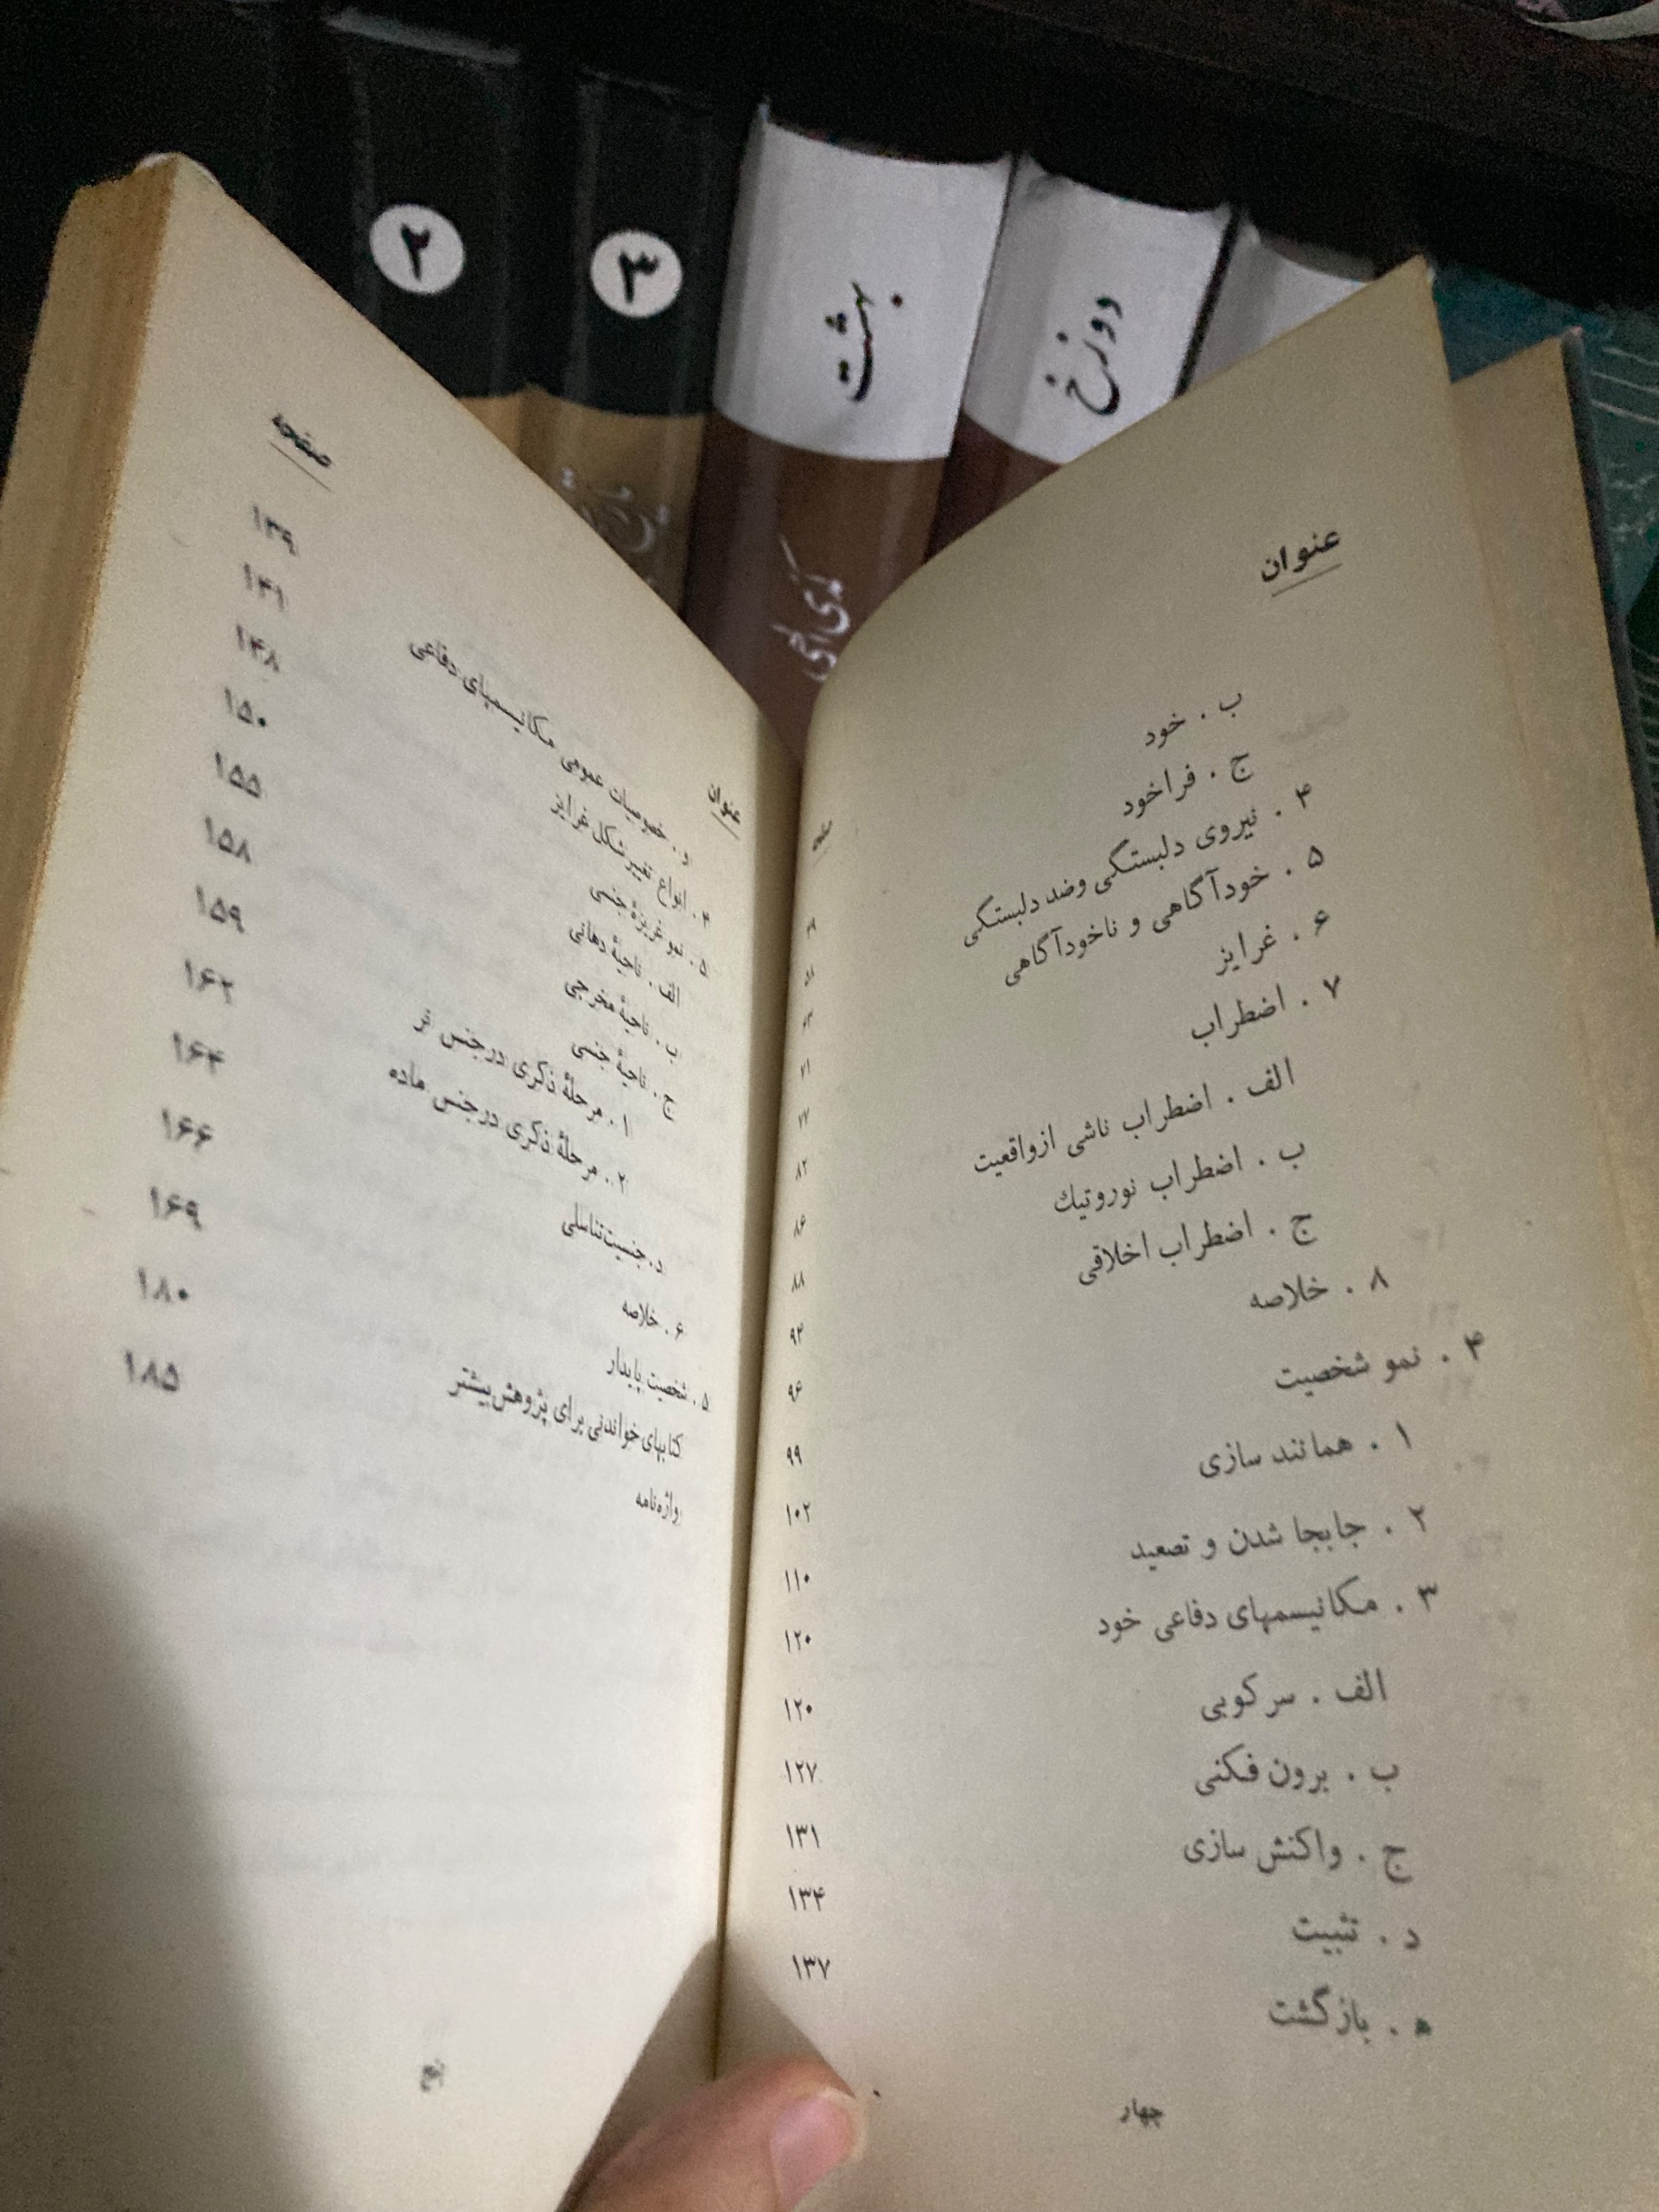 ۲
۳
بهشت
دوزخ
عنوان
صفحه
ب . خود
ج . فراخود
۴ . نیروی دلبستگی وضد دلبستگی
۵ . خودآگاهی و ناخودآگاهی
۶ . غرایز ۷۱
۷ . اضطراب ۷۷
الف . اضطراب ناشی ازواقعیت ۸۲
ب . اضطراب نوروتیك ۸۶
ج . اضطراب اخلاقی ۸۸
۸ . خلاصه ۹۴
۴ . نمو شخصیت ۹۶
۱ . همانند سازی ۹۹
۲ . جابجا شدن و تصعید ۱۰۲
۳ . مکانیسمهای دفاعی خود ۱۱۰
الف . سرکوبی ۱۲۰
ب . برون فکنی ۱۲۰
ج . واکنش سازی ۱۲۷
د . تثبیت ۱۳۱
ه . بازگشت ۱۳۴
۱۳۷
چهار
عنوان
صفحه
و . خصوصیات عمومی مکانیسمهای دفاعی ۱۳۹
۴ . انواع تغییر شکل غرایز ۱۴۱
۵ . نمو غریزهٔ جنسی ۱۴۸
الف . ناحیهٔ دهانی ۱۵۰
ب . ناحیهٔ مخرجی ۱۵۵
ج . ناحیهٔ جنسی ۱۵۸
۱ . مرحلهٔ ذکری درجنس نر ۱۵۹
۲ . مرحلهٔ ذکری درجنس ماده ۱۶۲
د . جنسیت تناسلی ۱۶۴
۶ . خلاصه ۱۶۶
۵ . شخصیت پایدار ۱۶۹
کتابهای خواندنی برای پژوهش بیشتر ۱۸۰
واژه نامه ۱۸۵
پنج